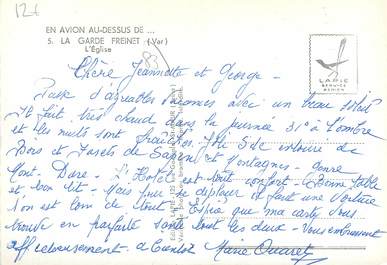 12f
EN AVION AU-DESSUS DE ...
5. LA GARDE FREINET (Var)
L'Église
83
LAPIE
SERVICE
AERIEN
Chère Jeannette et George -
Passe d'agréables vacances avec un beau soleil
Il fait très chaud dans la journée 31° à l'ombre
et les nuits sont fraîches. Joli Site entouré de
Bois et Forêts de Sapin et Montagnes - genre
Mont - Dore. - L'Hôtel est tout confort - Bonne table
et bon lit - Mais pour se déplacer il faut une voiture
on est loin de tout. Espère que ma carte vous
trouve en parfaite santé tout les deux - Vous embrassent
affectueusement à bientôt Marie Ouaret